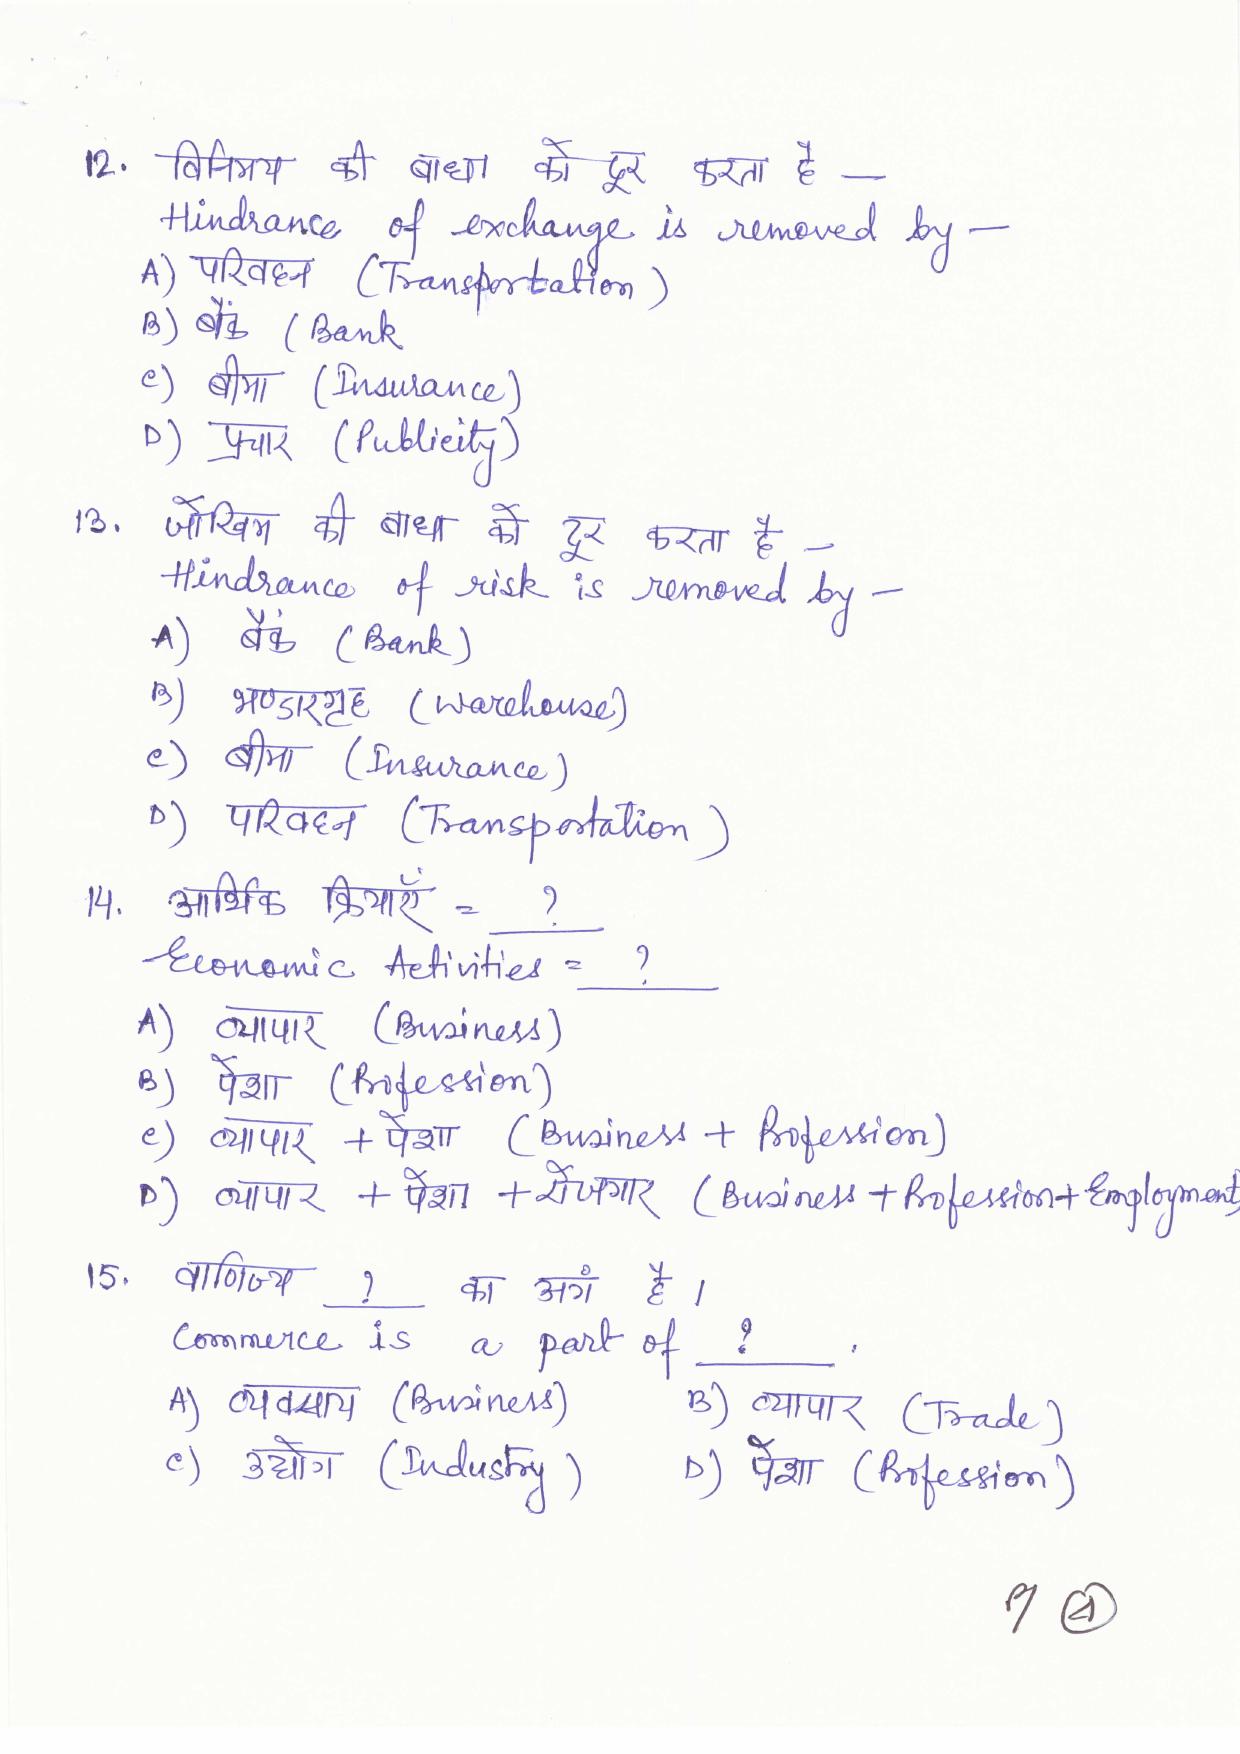 12. विनिमय की बाधा को दूर करता है —
Hindrance of exchange is removed by —
A) परिवहन (Transportation)
B) बैंक (Bank
C) बीमा (Insurance)
D) प्रचार (Publicity)
13. जोखिम की बाधा को दूर करता है —
Hindrance of risk is removed by —
A) बैंक (Bank)
B) भण्डारगृह (Warehouse)
C) बीमा (Insurance)
D) परिवहन (Transportation)
14. आर्थिक क्रियाएँ = ?
Economic Activities = ?
A) व्यापार (Business)
B) पेशा (Profession)
C) व्यापार + पेशा (Business + Profession)
D) व्यापार + पेशा + रोजगार (Business + Profession + Employment)
15. वाणिज्य ? का अगं है ।
Commerce is a part of ? .
A) व्यवसाय (Business) B) व्यापार (Trade)
C) उद्योग (Industry) D) पेशा (Profession)